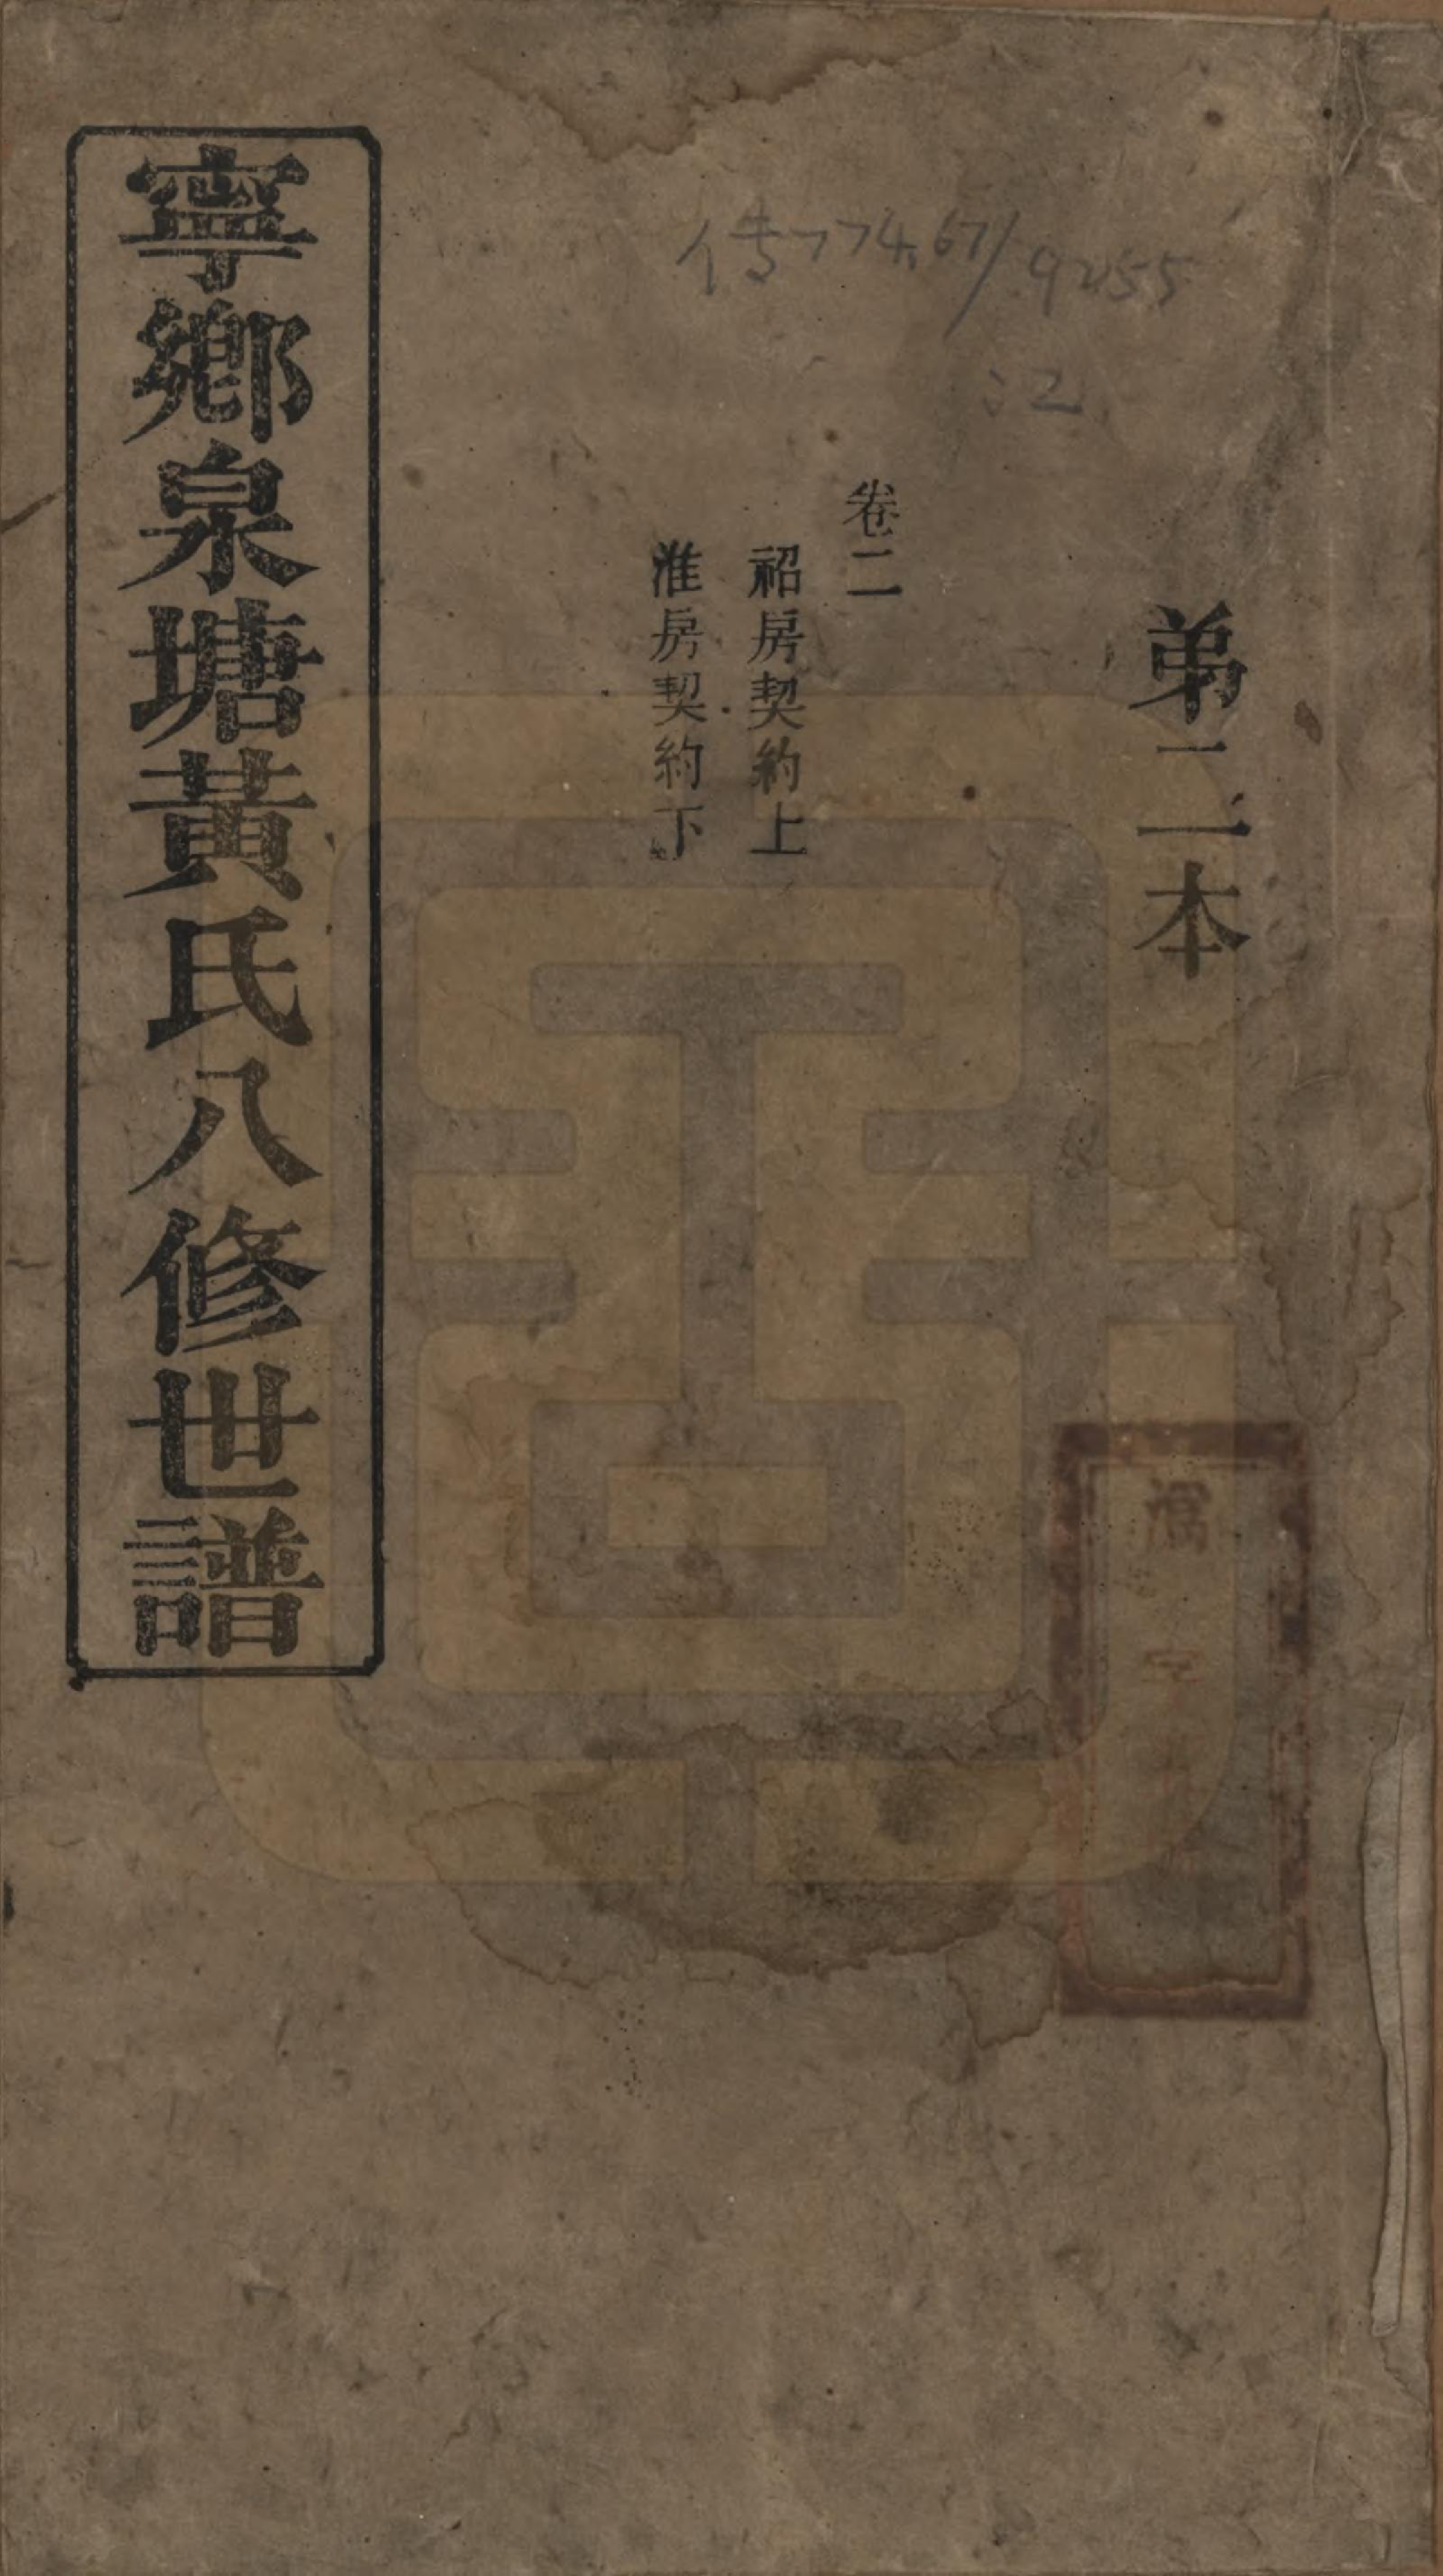 傳774.67/9255
:2
弟二本
卷二
祒房契約上
淮房契約下
寧鄉泉塘黃氏八修世譜